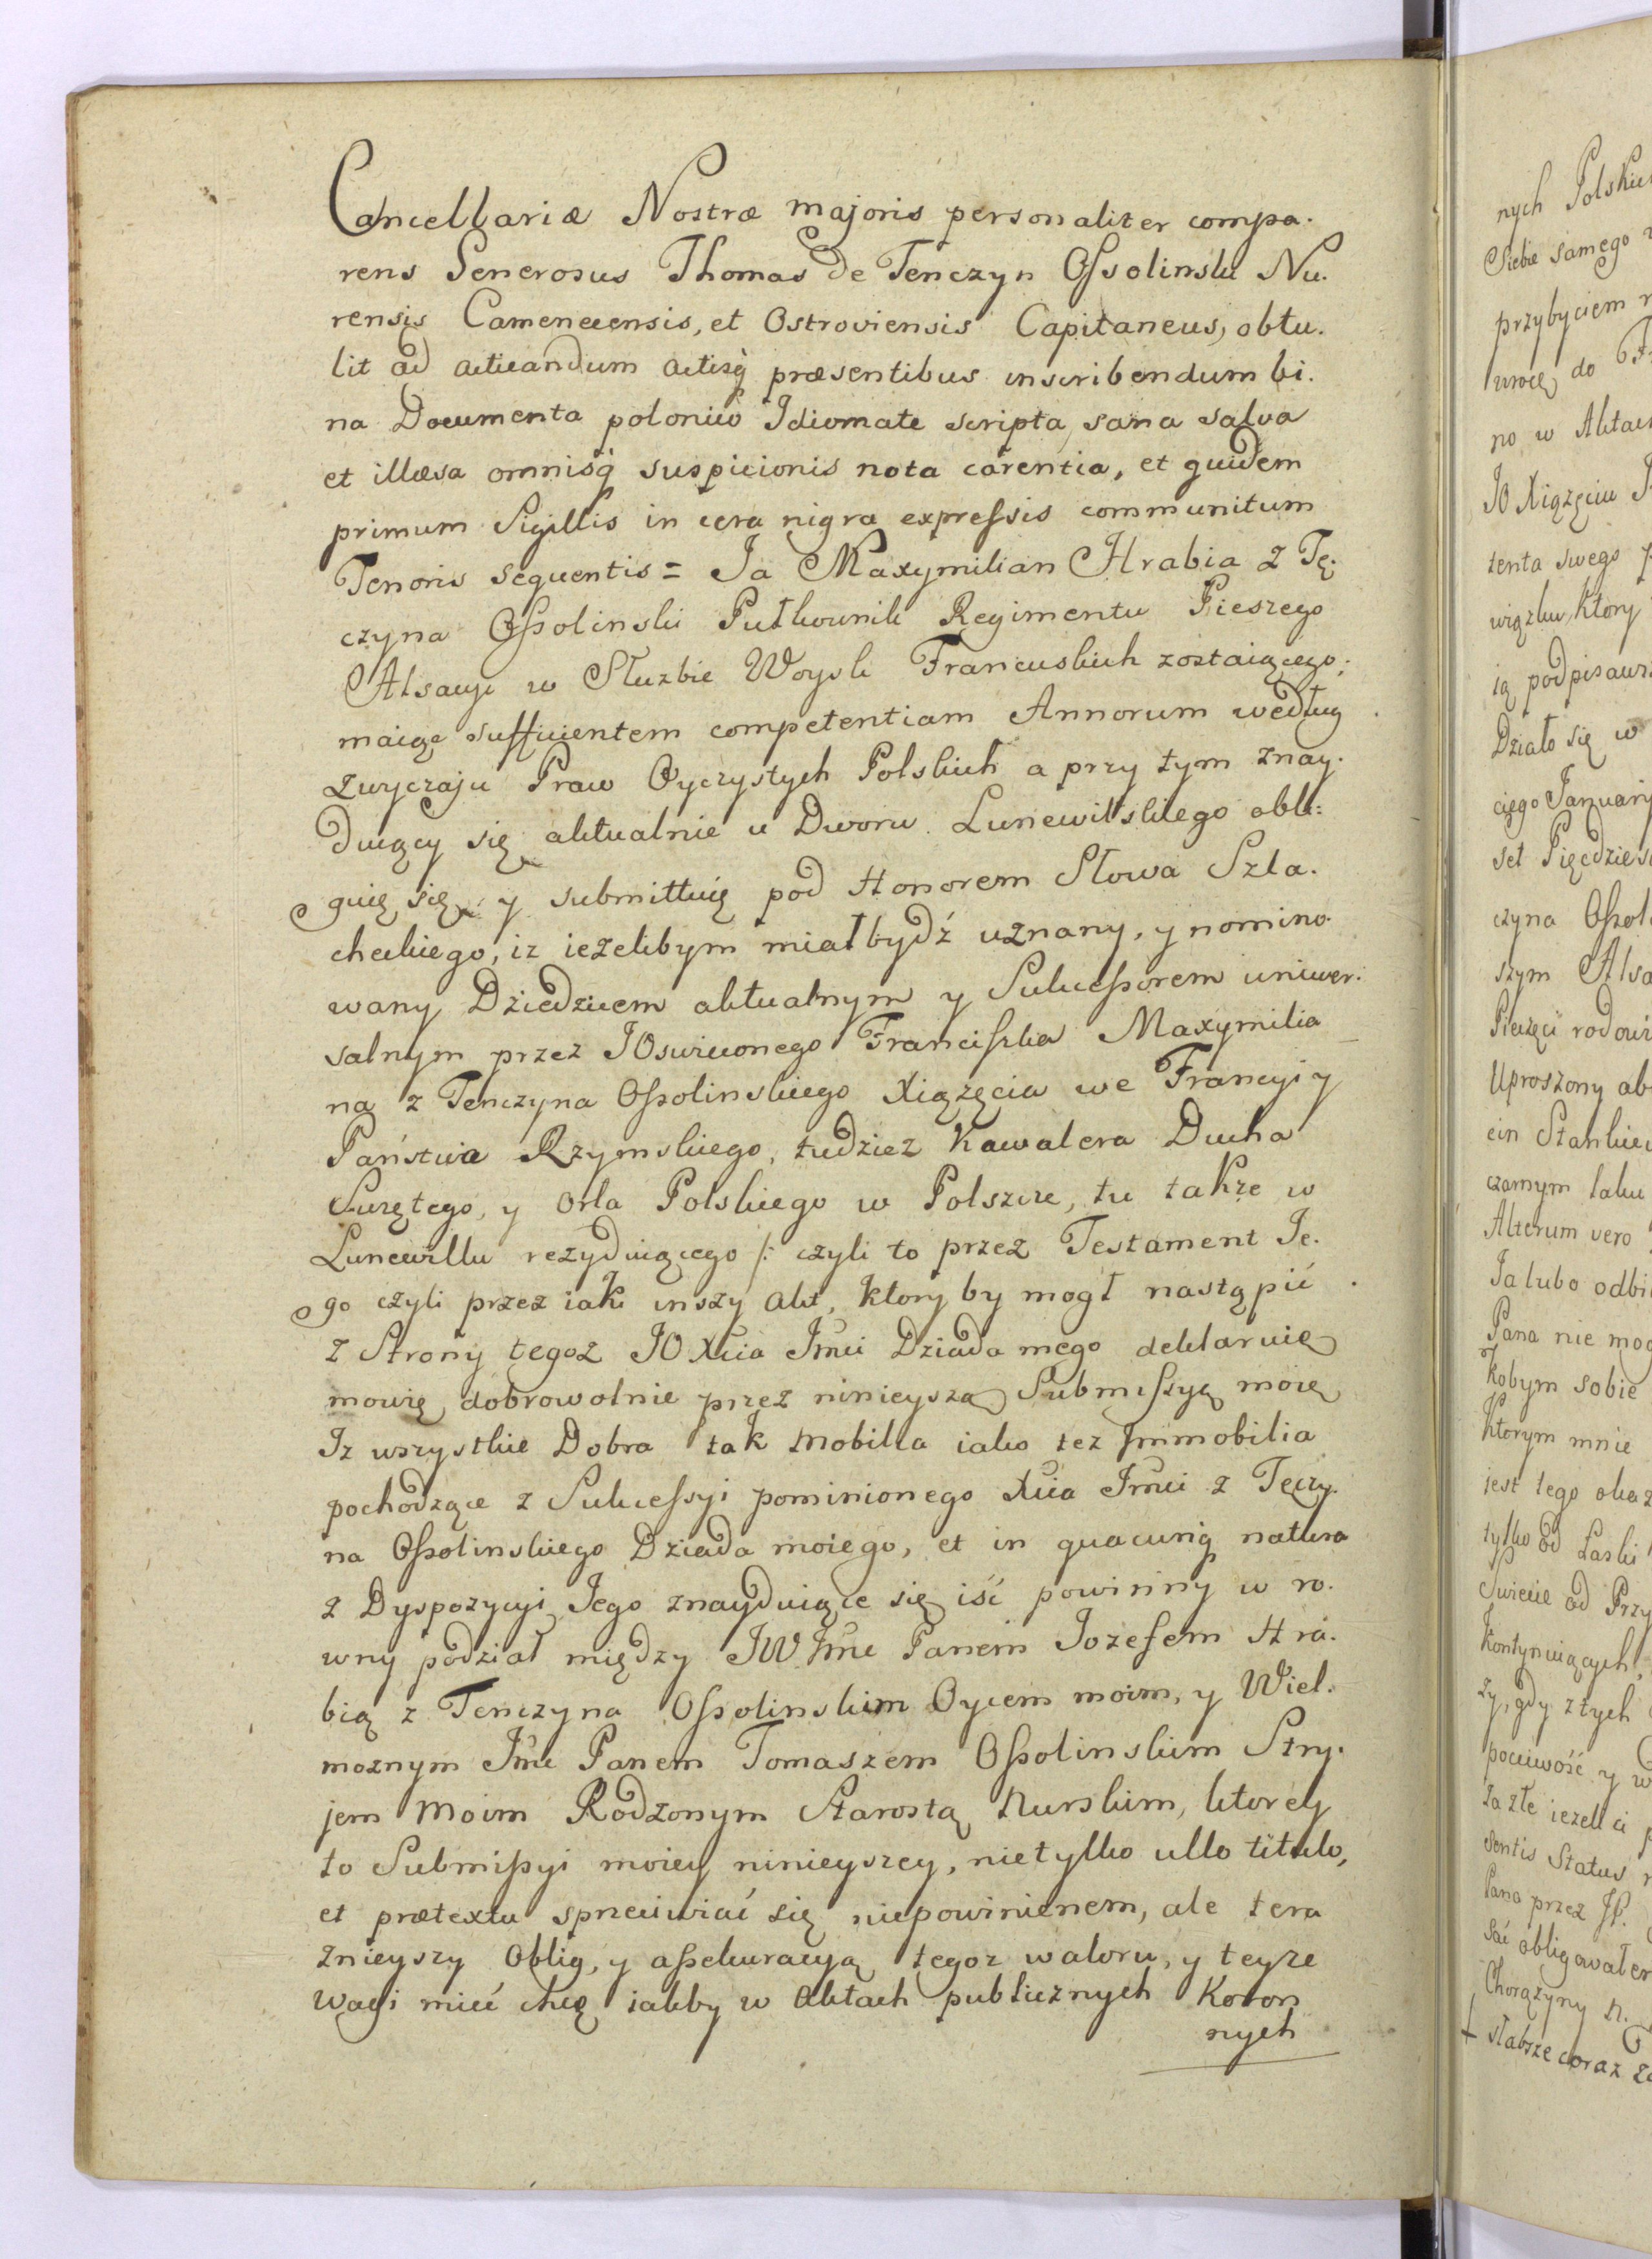 Cancellariæ Nostræ majoris personaliter compa.
rens Generosus Thomas de Tenczyn Ossolinski Nu.
rensis Camenecensis, et Ostroviensis Capitaneus, obtu.
lit ad acticandum actisq̀ præsentibus inscribendum bi.
na Documenta polonico Idiomate scripta, sana salva
et illæsa omnisq̀ suspicionis nota carentia, et quidem
primum Sigillis in cera nigra expressis communitum
Tenoris sequentis = Ja Maxymilian Hrabia z Tę.
czyna Ossolinski Pułkownik Regimentu Pieszego
Alsacyi w Służbie Woysk Francuskich zostaiącego;
maiąc sufficientem competentiam Annorum według
zwyczaju Praw Oyczystych Polskich a przy tym znay.
duiący się aktualnie u Dworu Lunewilskiego obli:
guię się y submittuię pod Honorem Słowa Szla.
checkiego, iz ieżelibym miał bydź uznany, y nomino.
wany Dziedzicem aktualnym y Sukcessorem uniwer.
salnym przez JOswieconego Franciszka Maxymilia
na z Tenczyna Ossolinskiego Xiążęcia we Francyi y
Państwa Rzymskiego, tudziez Kawalera Ducha
Swiętego, y Orła Polskiego w Polszcze, tu także w
Lunewillu rezyduiącego /: czyli to przez Testament Je.
go czyli przez iaki inszy akt, ktory by mogł nastąpić
z Strony tegoz JO Xcia Jmci Dziada mego deklaruię
mowię dobrowolnie przez ninieyszą Submissyą moię
Iz wszystkie Dobra tak Mobilia iako tez Immobilia
pochodzące z Sukcessyi pominionego Xcia Jmci z Tęczy.
na Ossolinskiego Dziada moiego, et in quacunq̀ natura
z Dyspozycyi Jego znayduiące się iść powinny w ro.
wny podział między JW Jmc Panem Jozefem Hra.
bią z Tenczyna Ossolinskim Oycem moim, y Wiel.
możnym Jmc Panem Tomaszem Ossolinskim Stry.
jem Moim Rodzonym Starostą Nurskim, ktorey
to Submissyi moiey ninieyszey, nietylko ullo titulo,
et prætextu sprzeciwiać się niepowinienem, ale tera
znieyszy Oblig, y assekuracyą tegoz waloru, y teyże
wagi mieć chcę iakby w Aktach publicznych Koron
nych
nych Polskic
Siebie samego
przybyciem
wrocę do
no w Aktach
JO Xiążęciu
tenta swego
wiązku, ktory
ią podpisawsz
Działo się w
ciego January
set Pięcdzies
czyna Ossol
szym Alsa
Pieczęci rodowi
Uproszony
cin Stankie
czarnym laku
Alterum vero
Ja lubo odbi
Pana nie mog
kobym sobie
ktorym mnie
jest tego okaz
tylko od Łaski
Swiecie od Przy
kontynuiących,
zy, gdy z tych
pocciwość y w
za złe ieżeli ci
sentis Status
Pana przez
sać obligowałem
Chorążyny N.
słabsze coraz